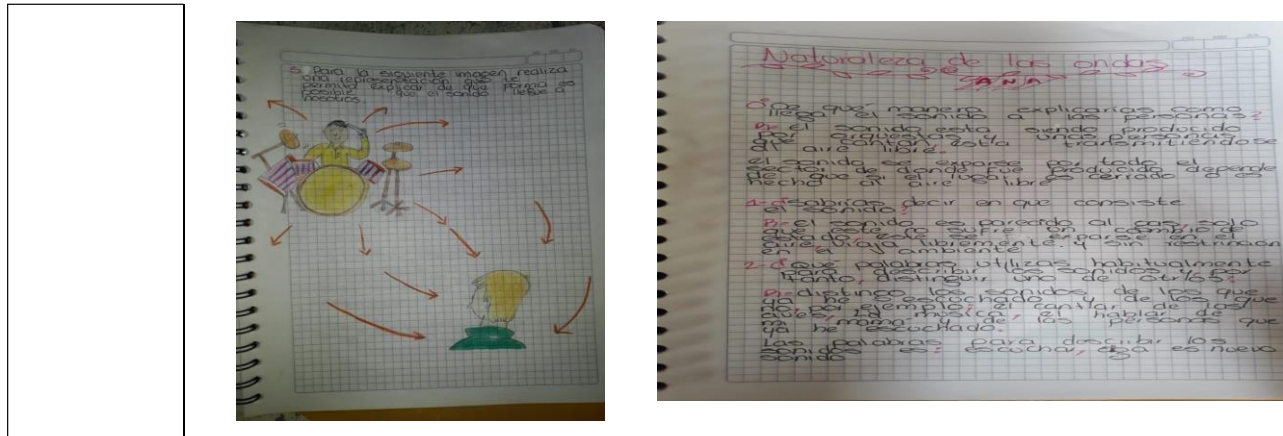 3- Para la siguiente imagen realiza
una representación que te
permita explicar de que forma es
posible que el sonido llegue a
nosotros.
Naturaleza de las ondas
¿De qué manera explicarías como
llega el sonido a las personas?
R- El sonido esta siendo producido
por orquestas y unas personas
que cantan, esta transmitiendose
al aire libre.
el sonido se esparse por todo el
sector de donde fue producido depende
de que si el lugar es cerrado o es
hecho al aire libre
1- ¿Sabrías decir en que consiste
el sonido?
R- El sonido es parecido al gas, solo
que este no sufre un cambio de
estado, este se esparse en el
aire, viaja libremente y sin restricion
en el ambiente
2- ¿Qué palabras utilizas habitualmente
para describir los sonidos y por
tanto, distinguir uno de otrℓos?
R- distingo los sonidos de los que
ya he escuchado y de los que
no, por ejemplo: el cantar de las
aves, la música, el hablar de
mi mamá y de las personas que
ya he escuchado.
Las palabras para describir los
sonidos es: escuchar, es nuevo
sonido